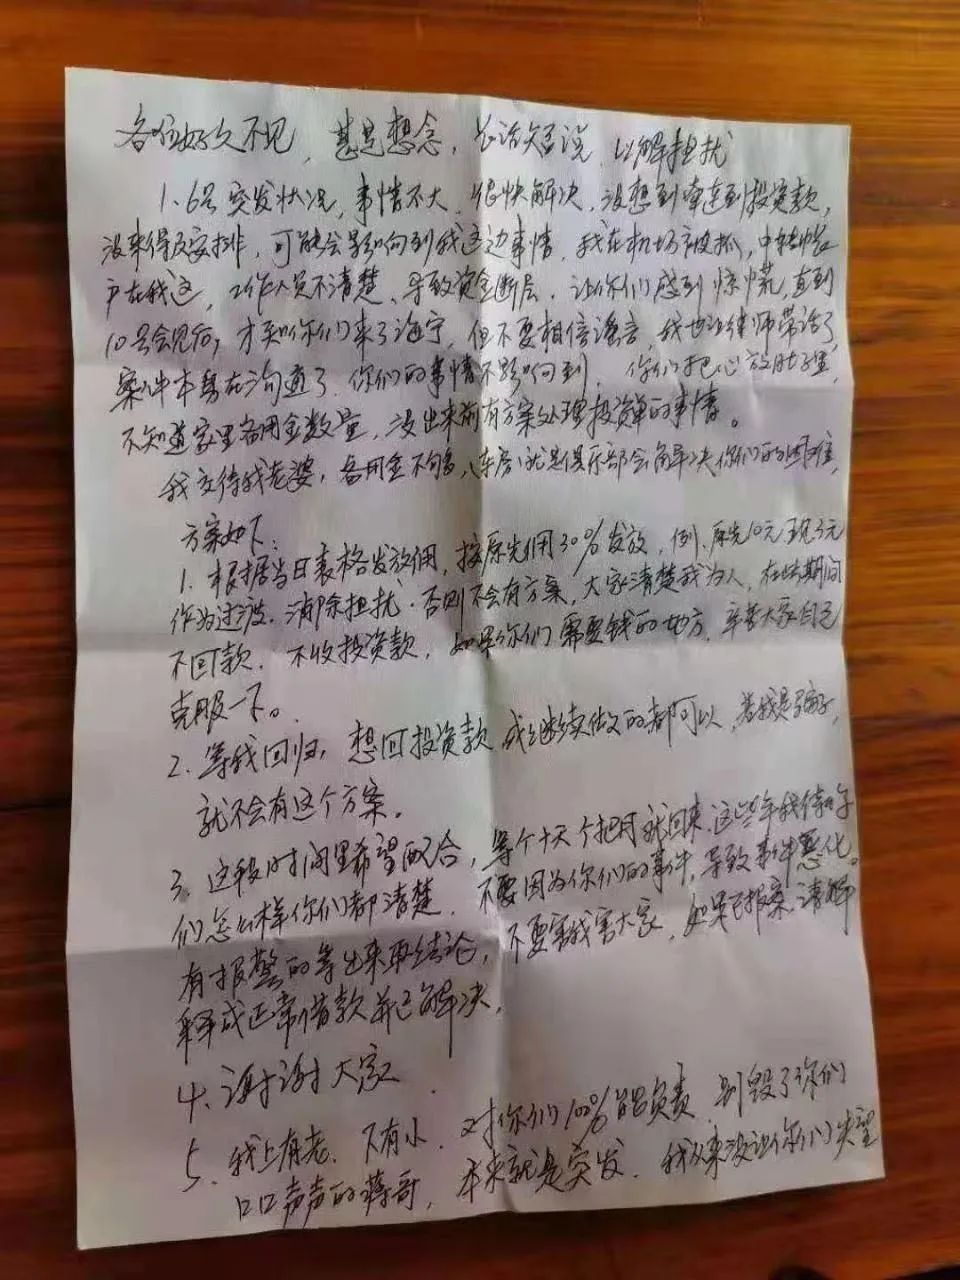 各位好久不见，甚是想念，长话短说，以解担扰
1、6号突发状况，事情不大，很快解决，没想到牵连到投资款，
没来得及安排，可能会影响到我这边事情，我在机场被抓，中转帐
户在我这，工作人员不清楚、导致资金断层、让你们感到惊慌，直到
10号会见后，才知你们来了海宁，但不要相信谣言，我也让律师带话了，
案件本身在沟通了，你们的事情不影响到，你们把心放肚子里，
不知道家里备用金数量，没出来前有方案处理投资单的事情。
我交待我老婆，备用金不够，车房、就是俱乐部会解决你们的困难，
方案如下：
1、根据当日表格发放佣，按原先佣30%发放，例、原先10元现3元
作为过渡、消除担扰，否则不会有方案，大家清楚我为人，在此期间
不回款、不收投资款，如果你们需要钱的地方，辛苦大家自己
克服一下。
2、等我回归，想回投资款或继续做的都可以，若我是骗子，
就不会有这个方案。
3、这段时间里希望配合，等个十天个把月就回来，这些年我待你
们怎么样你们都清楚，不要因为你们的事件，导致事件恶化。
有报警的等出来再结论，不要害我害大家，如果已报案，请解
释成正常借款并已解决，
4、谢谢大家
5、我上有老、下有小，对你们100%能负责，别毁了你们
口口声声的蒋哥，本来就是突发，我从来没让你们失望